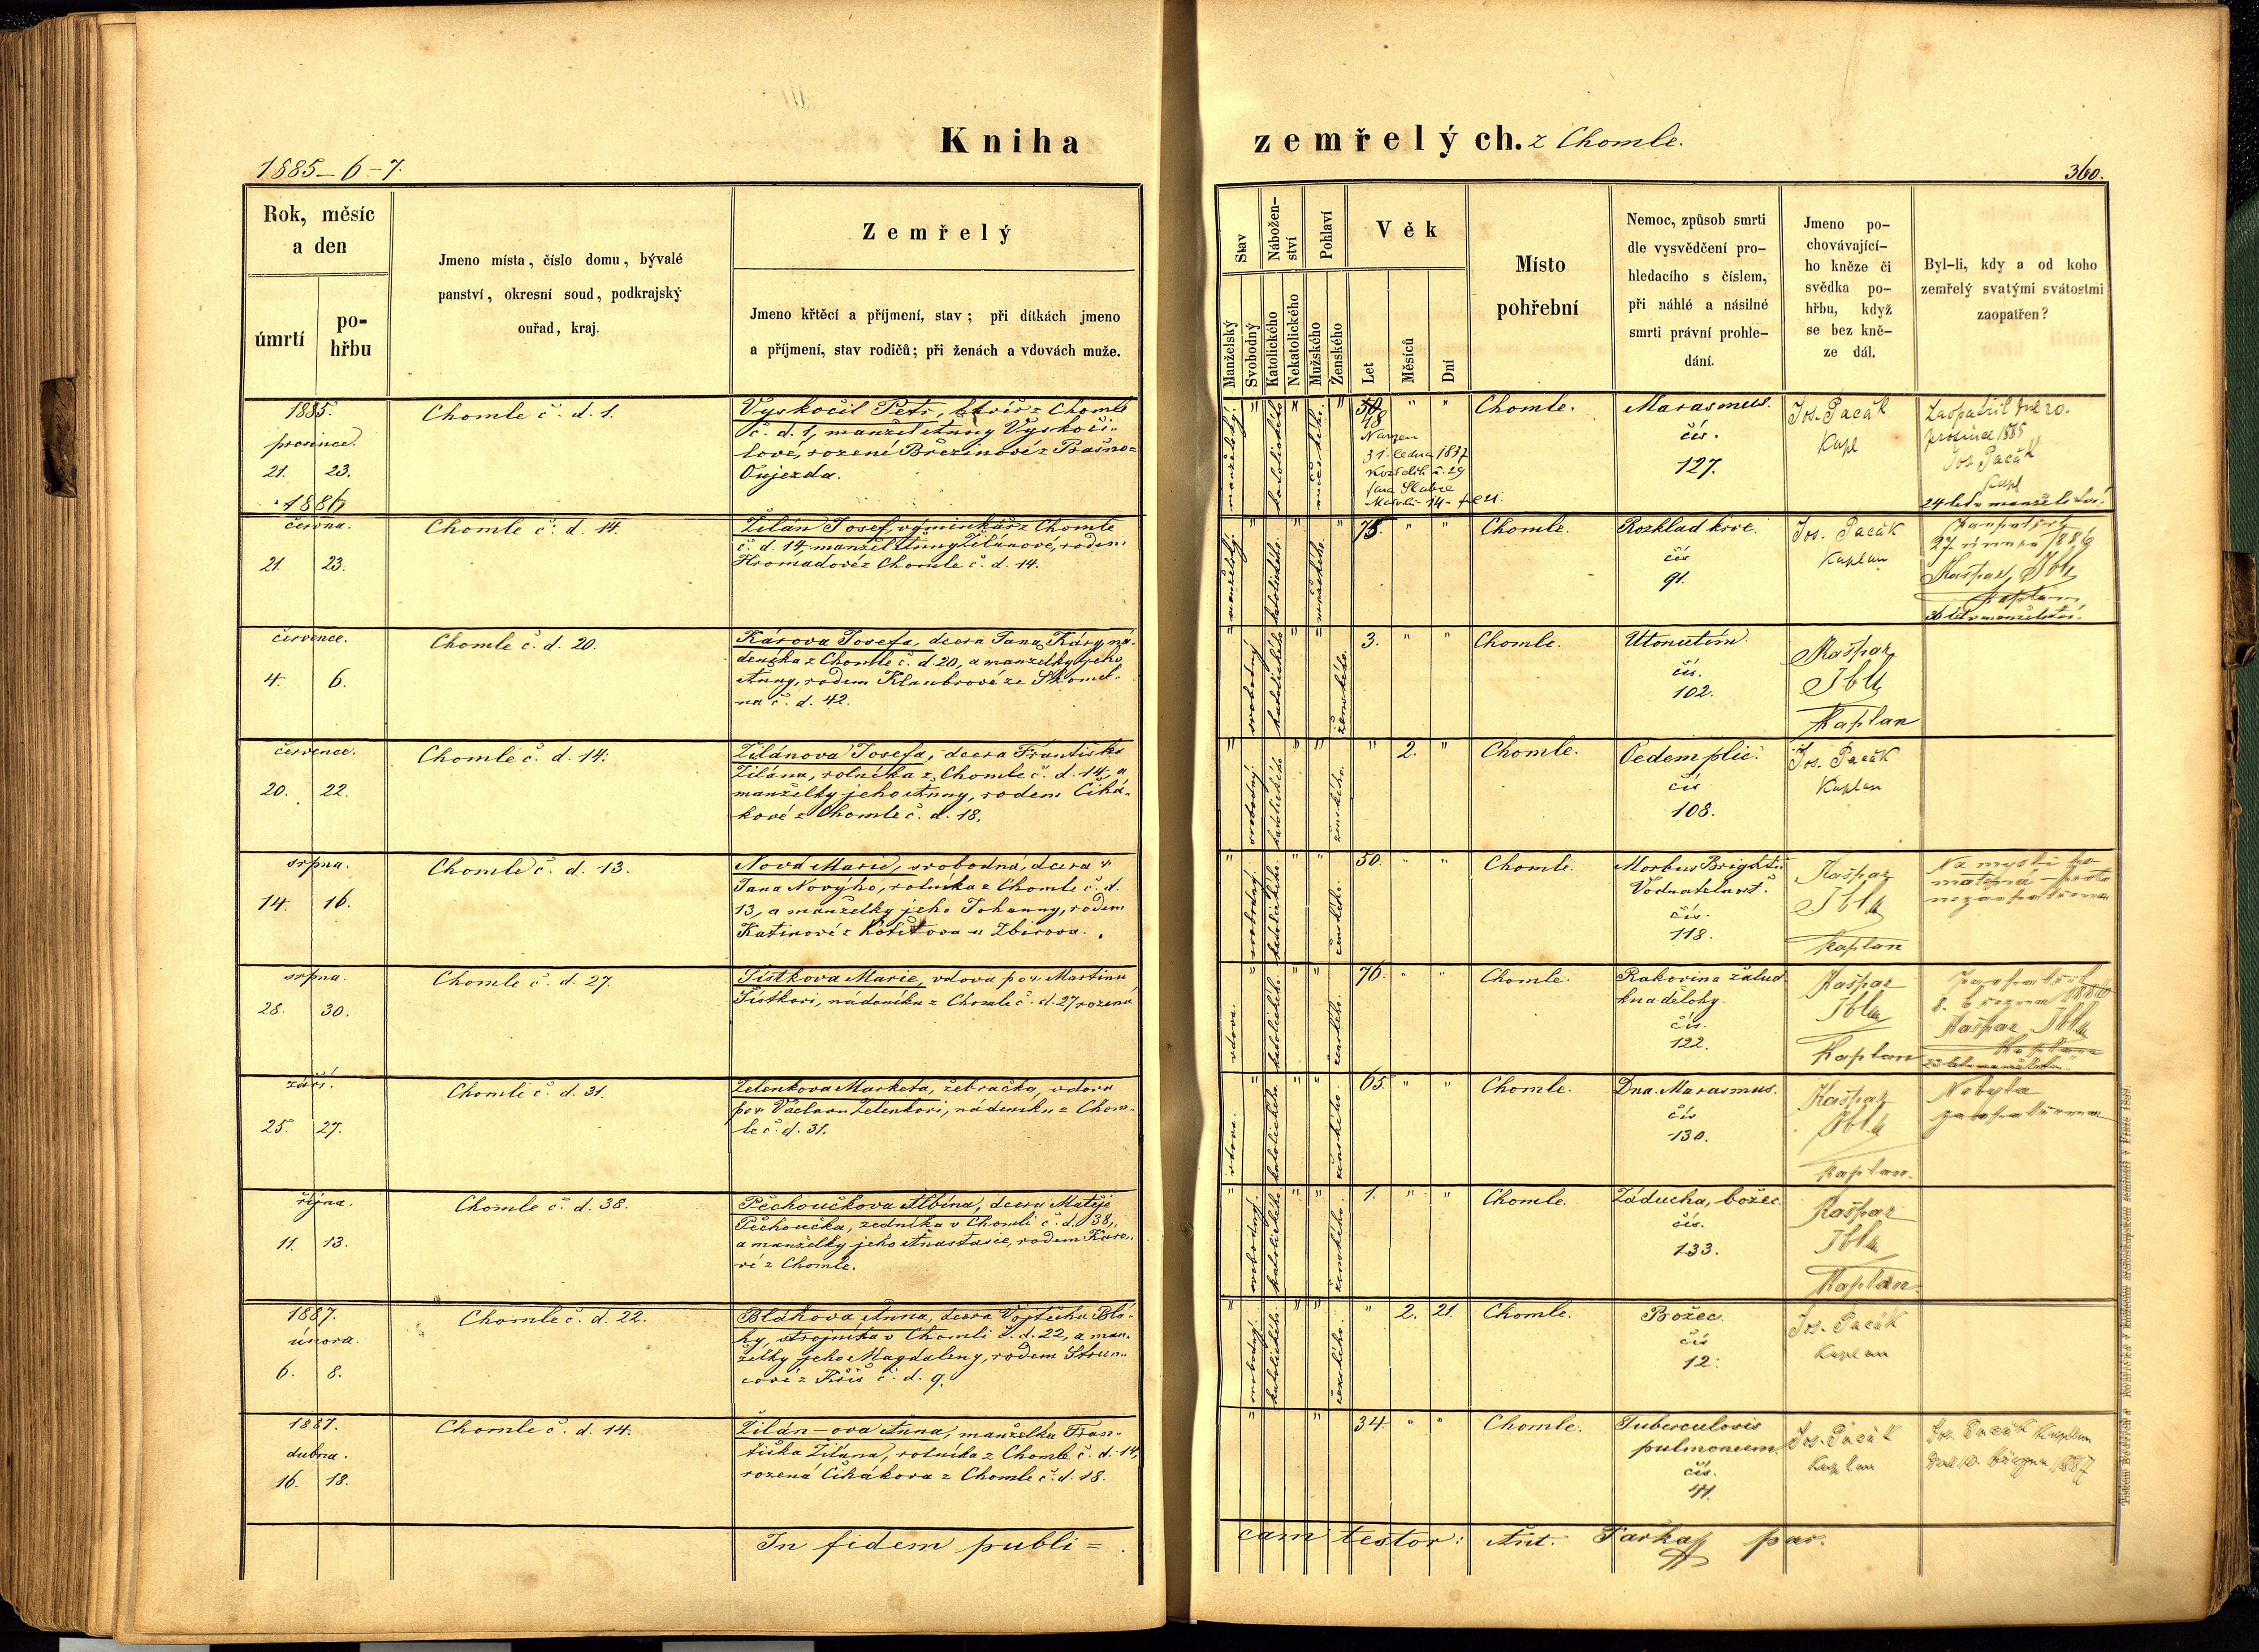 Kniha zemřelých. z Chomle.
1885-6-7.
360.
Rok, měsíc
a den
úmrtí
po-
hřbu
Jmeno místa, číslo domu, bývalé
panství, okresní soud, podkrajský
ouřad, kraj.
Zemřelý
Jmeno křtěcí a příjmení, stav; při dítkách jmeno
a příjmení, stav rodičů; při ženách a vdovách muže.
Stav
Nábožen-
ství
Pohlaví
Věk
Manželský
Svobodný
Katolického
Nekatolického
Mužského
Ženského
Let
Měsíců
Dní
Místo
pohřební
Nemoc, způsob smrti
dle vysvědčení pro-
hledacího s číslem,
při náhlé a násilné
smrti právní prohle-
dání.
Jmeno po-
chovávající-
ho kněze či
svědka po-
hřbu, když
se bez kně-
ze dál.
Byl-li, kdy a od koho
zemřelý svatými svátostmi
zaopatřen?
1885.
prosince.
21. 23.
Chomle č. d. 1.
Vyskočil Petr, z Chomle
č. d. 1, manžel Anny Vyskoči-
lové, rozené Březinové z Prašno-
Oujezda.
manželský.
katolického
mužského.
50 " "
48
Narzen
31. ledna 1837
č. 29
fara Slabce
14 - fol 21.
Chomle.
Marasmus.
čís.
127.
Jos. Pacák
Kapl
Zaopatřil dne 20.
prosince 1885
Jos. Pacák
Kapl
24 let v manželství.
1886
června.
21. 23.
Chomle č. d. 14.
Žilán Josef, výminkář z Chomle
č. d. 14, manžel Anny Žilánové, rodem
Hromadové z Chomle č. d. 14.
manželský.
katolického.
mužského.
75. " "
Chomle.
Rozklad krve.
čís
91.
Jos. Pacák
Kaplan
27. února 1886
Kašpar Ibl
kaplan
36 let v manželství.
července.
4. 6.
Chomle č. d. 20.
Károva Josefa, dcera Jana Káry ná-
deníka z Chomle č. d. 20, a manželky jeho
Anny, rodem Klaubrové ze Skomel-
na č. d. 42.
svobodný
katolického
ženského.
3. " "
Chomle.
Utonutím.
čís.
102.
Kašpar
Ibl
Kaplan
července.
20. 22.
Chomle č. d. 14.
Žilánova Josefa, dcera Františka
Žilána, rolníka z Chomle č. d. 14, a
manželky jeho Anny, rodem Čihá-
kové z Chomle č. d. 18.
svobodný.
katolického
ženského.
" 2. "
Chomle.
Oedem plic.
čís
108.
Jos. Pacák
Kaplan
srpna.
14. 16.
Chomle č. d. 13.
Nová Marie, svobodná, dcera †
Jana Nového, rolníka z Chomle č. d.
13, a manželky jeho Johanny, rodem
z u Zbirova.
svobodný.
katolického.
ženského.
50. " "
Chomle.
Morbus Brightii
Vodnatelnost.
čís.
118.
Kašpar
Ibl
kaplan
Na mysli
matená - proto
nezaopatřena
srpna.
28. 30.
Chomle č. d. 27.
Šístkova Marie, vdova po † Martinu
Šístkovi, nádeníku z Chomle č. d. 27 rozená
vdova.
katolického.
ženského.
76. " "
Chomle.
Rakovina žalud-
ku a dělohy.
čís.
122.
Kašpar
Ibl
Kaplan
Zaopatřil
8. března 1886
Kašpar Ibl
kaplan
září.
25. 27.
Chomle č. d. 31.
Zelenkova Markéta, žebračka, vdova
po † Václavu Zelenkovi, nádeníku z Chom-
le č. d. 31.
vdova.
katolického
ženského.
65. " "
Chomle.
Dna. Marasmus.
čís
130.
Kašpar
Ibl
kaplan.
Nebyla
zaopatřena
října.
11. 13.
Chomle č. d. 38.
Pěchoučkova Albína, dcera Matěje
Pěchoučka, zedníka v Chomli č. d. 38,
a manželky jeho Anastasie, rodem Káro-
vé z Chomle.
svobodný.
katolického
ženského.
1. " "
Chomle.
Záducha, božec.
čís.
133.
Kašpar
Ibl
Kaplan
1887.
února.
6. 8.
Chomle č. d. 22.
Bláhova Anna, dcera Vojtěcha Blá-
hy, strojníka v Chomli č. d. 22, a man-
želky jeho Magdaleny, rodem Strun-
cové z Kříš č. d. 9.
svobodný.
katolického.
ženského.
" 2. 21.
Chomle.
Božec.
čís
12.
Jos. Pacák
Kaplan
1887.
dubna.
16. 18.
Chomle č. d. 14.
Žilán-ova Anna, manželka Fran-
tiška Žilána, rolníka z Chomle č. d. 14,
rozená Čihákova z Chomle č. d. 18.
34. " "
Chomle.
Tuberculosis
pulmoneum.
čís.
41.
Jos. Pacák
Kaplan
Jos. Pacák Kaplan
dne 10. března 1887
In fidem publi=
cam testor: Ant. Pařka par.